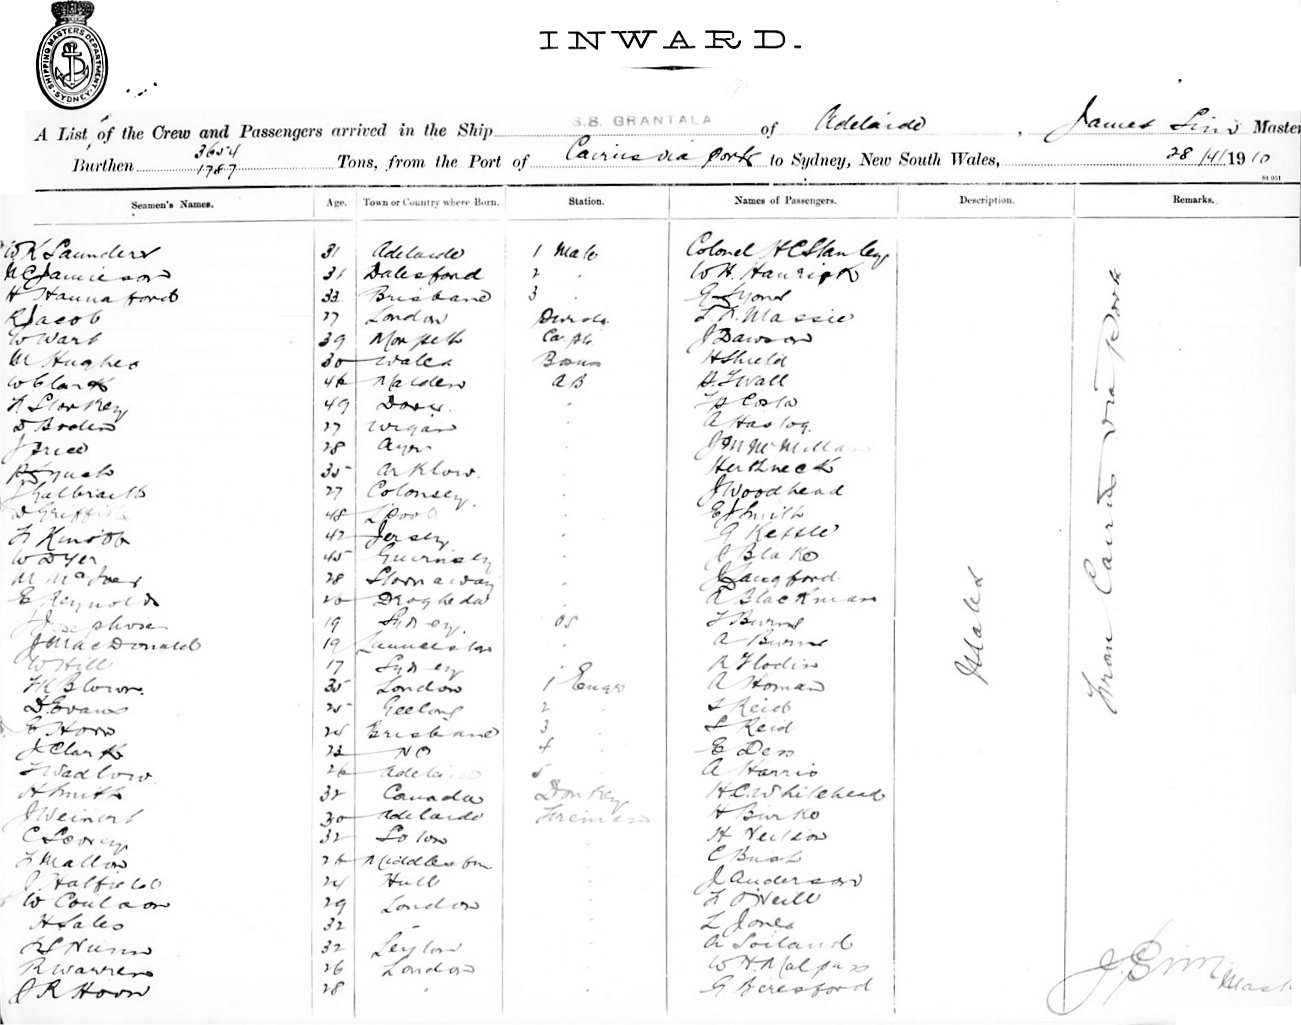 SHIPPING MASTERS DEPARTMENT SYDNEY
INWARD.
A List of the Crew and Passengers arrived in the Ship S.S. GRANTALA of Adelaide, James Sim Master
Burthen 3654 1787 Tons, from the Port of Cairns via ports to Sydney, New South Wales, 28/4/1910
Seamen's Names. Age. Town or Country where Born. Station. Names of Passengers. Description. Remarks.
W K Saunders 31 Adelaide 1 Mate Colonel H C Stanley
Jamieson 31 Dalesford 2 W H
H Hannaford 33 Brisbane 3 G Lyons
R Jacob 27 London Massie
W Wart 39 Morpeth Carptr J Dawson
M Hughes 30 Wales Bosun H Shield
W Clark Maldon AB Wall
Storkey 49 Dover Costa
D Boden 27 Wigan A
J Price 28 Ayr J M McMillan
35 Arklow
J Galbraith 27 Colonsey J Woodhead
D Griffith 48 L'pool E J Smith
47 Jersey G Kettle
W Dyer 45 Guernsey J Blake
M 28 Stornaway J Langford
E Reynolds 26 Drogheda A Blackman
Josephson 19 Sydney OS Burns
J MacDonald 19 Launceston A Burns
W Hill 17 Sydney R Flodin
Blown 35 London 1 Engr A Homan
D Evans 25 Geelong 2 S Reid
E Horo 24 Brisbane 3 S Reid
J Clark 23 4 E Den
F Wadlow 26 Adelaide 5 A Harris
H Smith 32 Canada Donkey H C Whitehead
J Weinert 30 Adelaide Fireman H Burke
C 32 H Neilson
F Mallon Middlesbro C Bush
J Hatfield 24 Hull J Anderson
W Coulson 29 London F O'Neill
H Sales 32 L Jones
Nunn 32 Leyton A Soiland
R Warren 26 London W H Malpass
J R Hoow 28 G Beresford
Males
From Cairns via ports
J Sim
Mast